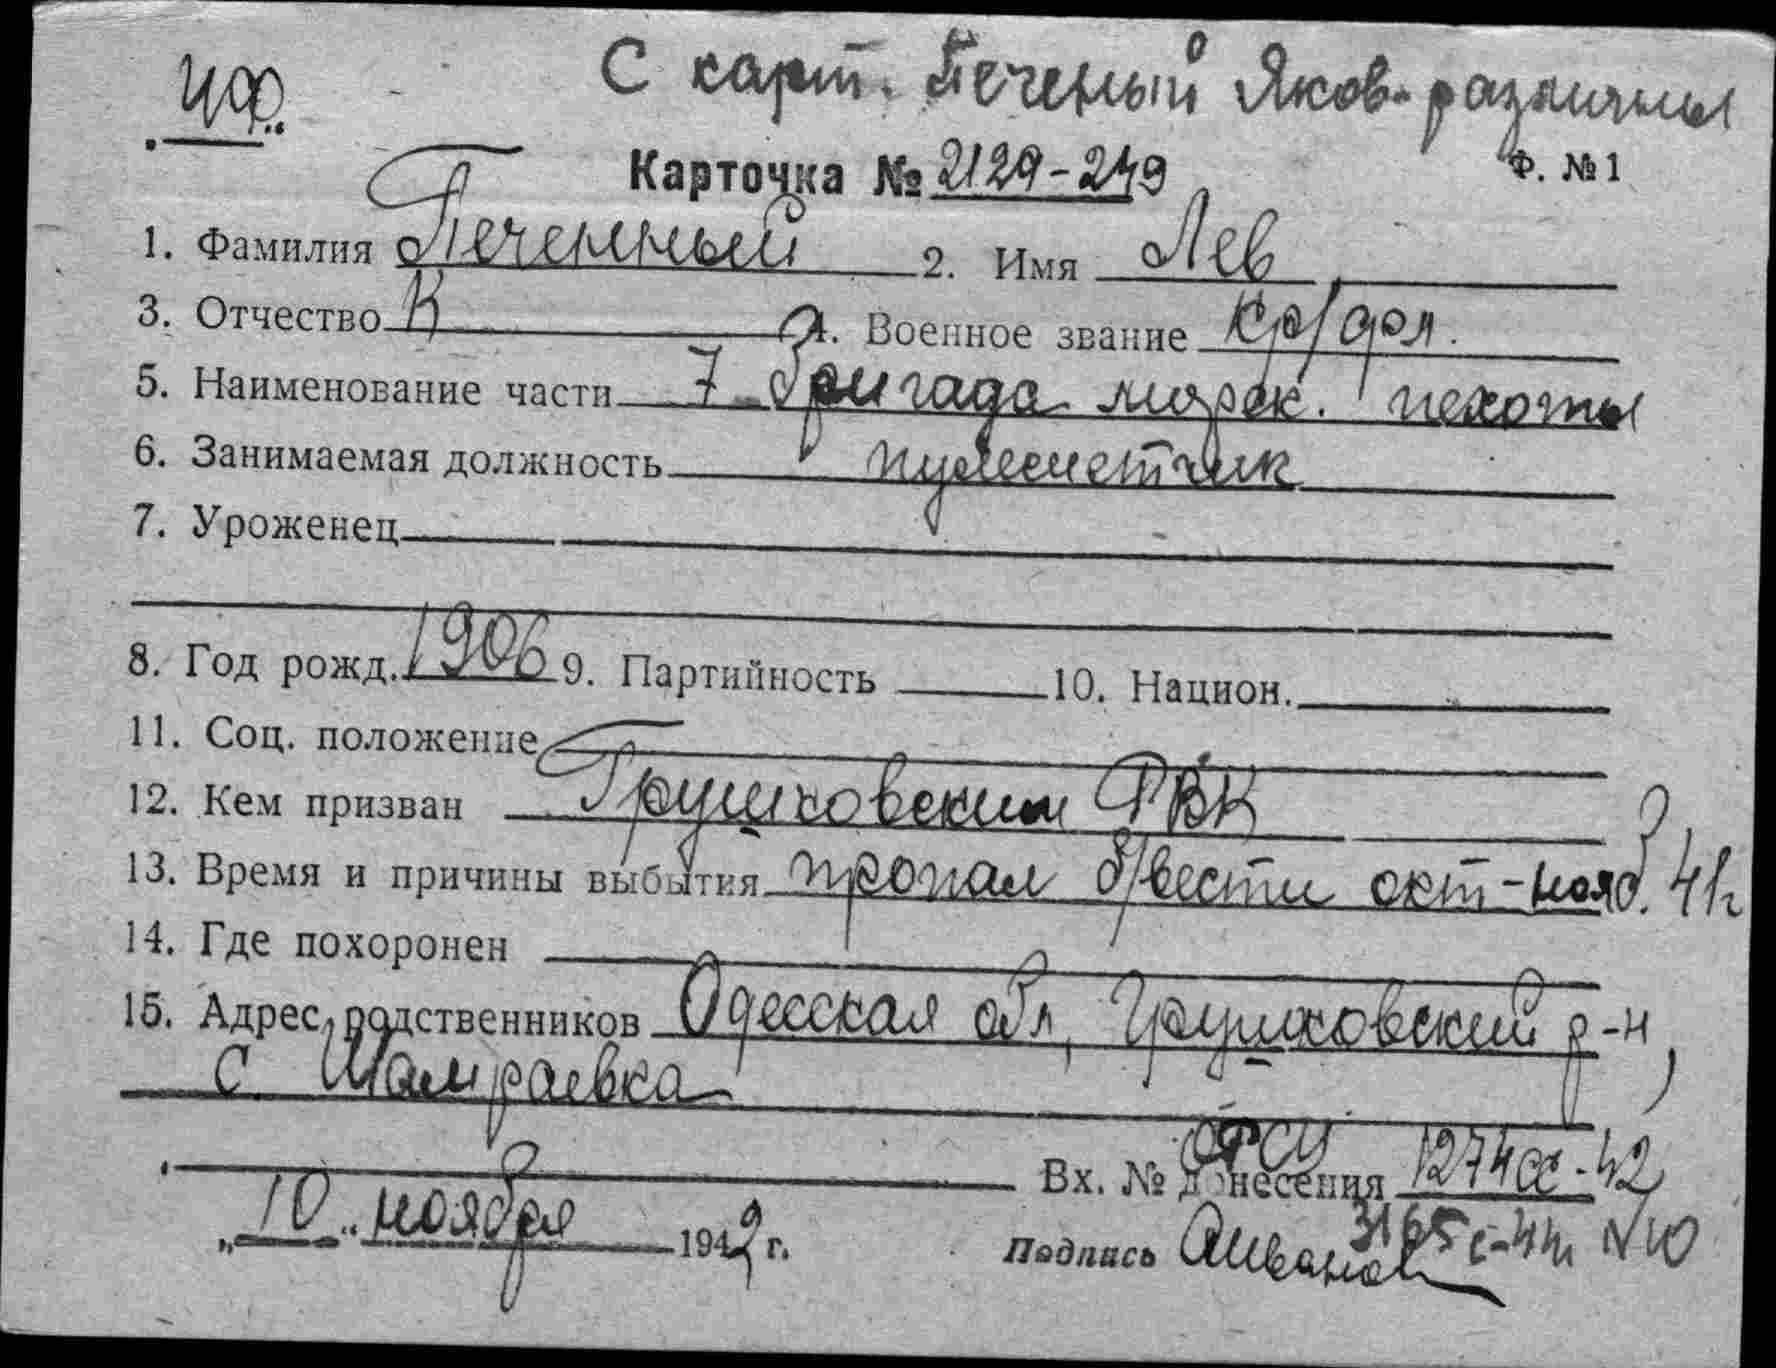 С карт. Печеный Яков - различны
ЧФ
Карточка № 2129-249
Ф. № 1
1. Фамилия Печенный 2. Имя Лев
3. Отчество К 4. Военное звание кр/фл.
5. Наименование части 7 бригада морск. пехоты
6. Занимаемая должность пулеметчик
7. Уроженец
8. Год рожд. 1906 9. Партийность 10. Национ.
11. Соц. положение
12. Кем призван Грушковским РВК
13. Время и причины выбытия пропал б/вести окт-нояб. 41г
14. Где похоронен
15. Адрес родственников Одесская обл, Грушковский р-н,
с. Шамраевка
Вх. № донесения 1274сс-42
„10“ ноября 1942 г.
Подпись